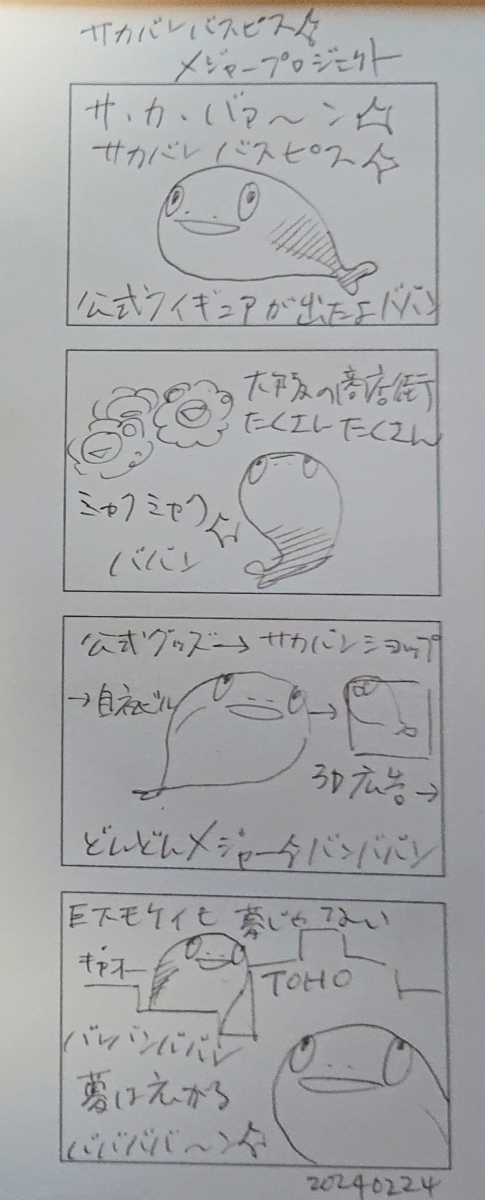 サカバンバスピス☆
メジャープロジェクト
サ・カ・バァ〜ン☆
サカバンバスピス☆
公式フィギュアが出たよババン
大阪の商店街
たくさん たくさん
ミャクミャク☆
ババン
公式グッズ→サカバンショップ
→自社ビル
→
3D広告→
どんどんメジャー☆バンババン
巨大モケイも夢じゃない
ギャオー
TOHO
バンバンババン
夢は広がる
ババババ〜ン☆
20240224